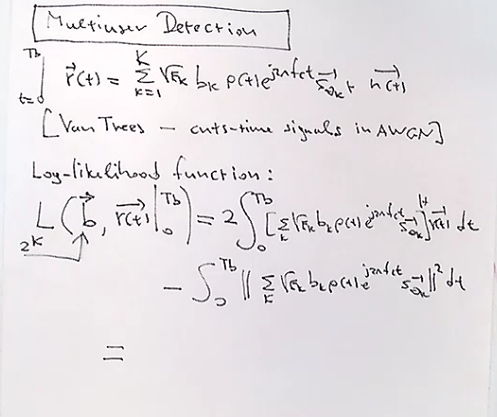 Multiuser Detection
Tb
t=0 r⃗(t) = Σ_{k=1}^{K} √E_k b_k p(t) e^{j2πf_c t} s⃗_{θ_k} + n⃗(t)
[Van Trees – cnts-time signals in AWGN]
Log-likelihood function:
L(b⃗, r⃗(t)|_0^{Tb}) = 2∫_0^{Tb} [Σ_k √E_k b_k p(t) e^{j2πf_c t} s⃗_{θ_k}]^H r⃗(t) dt
2^K
− ∫_0^{Tb} ‖ Σ_k √E_k b_k p(t) e^{j2πf_c t} s⃗_{θ_k} ‖² dt
=